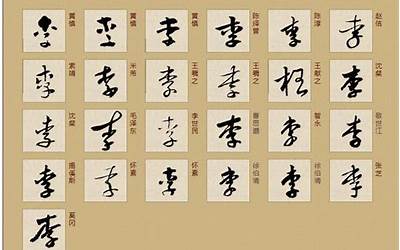 李 黄慎 李 黄慎 李 黄慎 李 陈绎曾 李 陈淳 李 赵佶
李 索靖 李 米芾 李 王羲之 李 王羲之 李 王献之 李 沈粲
李 沈粲 李 毛泽东 李 李世民 李 李 智永 李 敬世江
李 揭傒斯 李 怀素 李 怀素 李 徐伯清 李 徐伯清 李 张芝
李